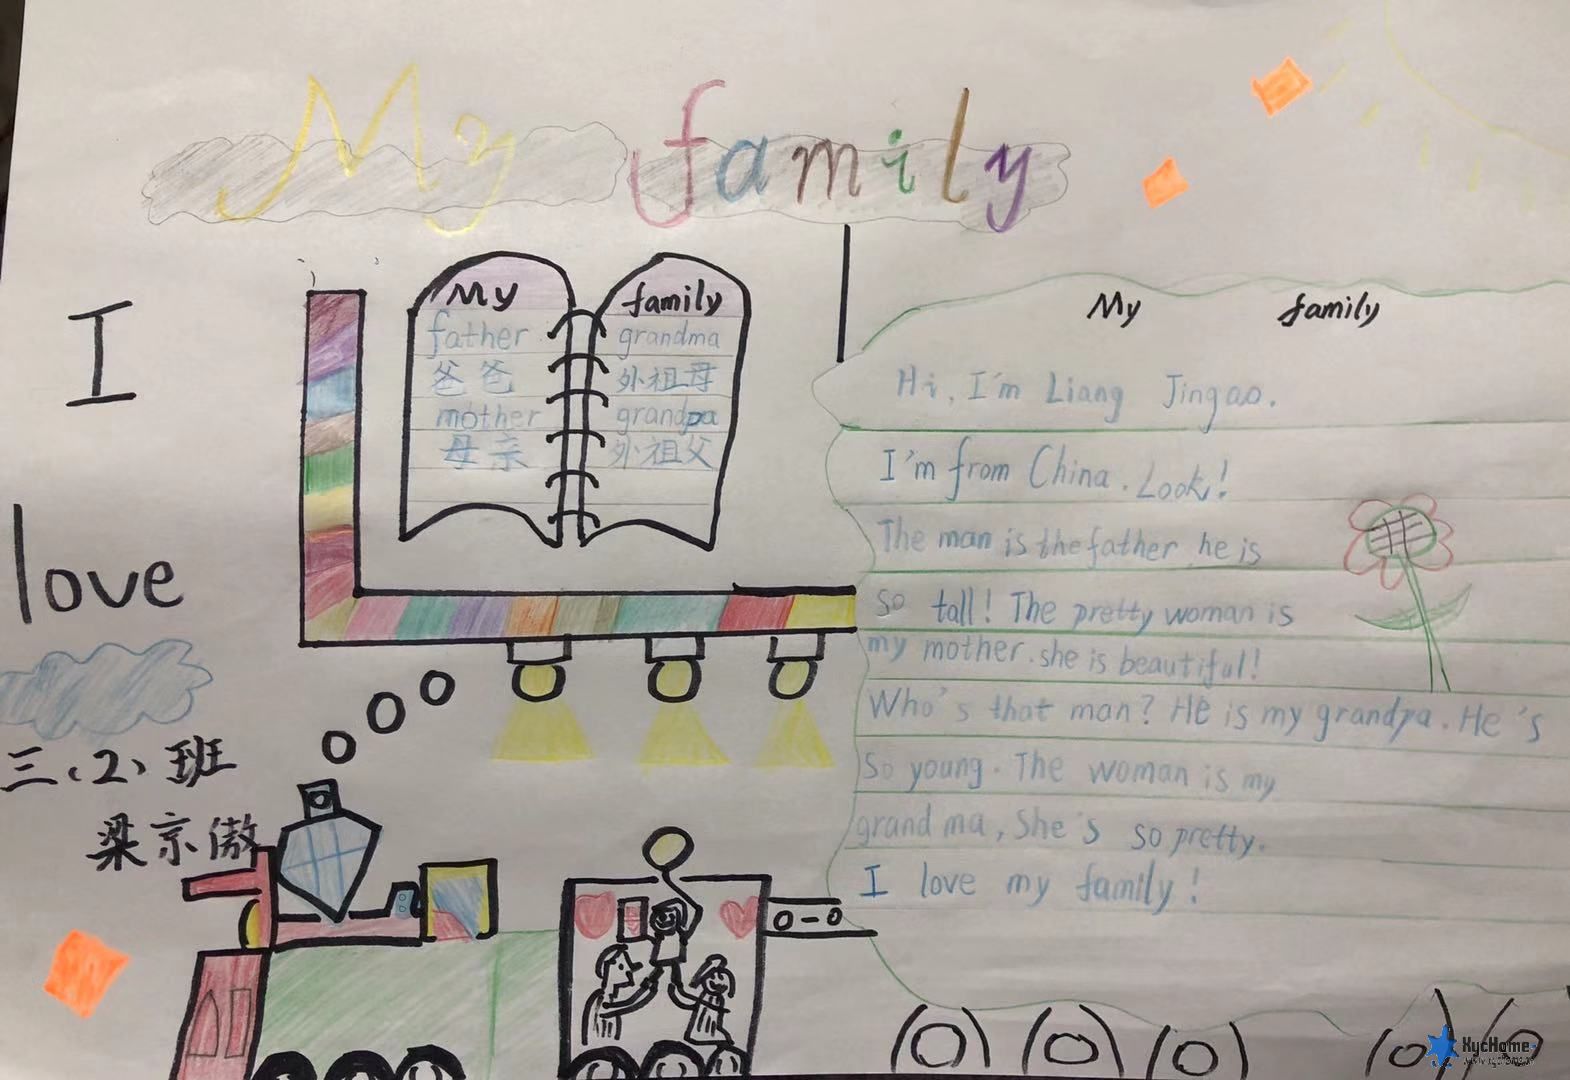 My family
I
love
三、(2)、班
梁京傲
My
father
爸爸
mother
母亲
family
grandma
外祖母
grandpa
外祖父
My family
Hi, I'm Liang Jingao.
I'm from China. Look!
The man is the father he is
so tall! The pretty woman is
my mother. she is beautiful!
Who's that man? He is my grandpa. He's
So young. The woman is my
grand ma, She's so pretty.
I love my family!
XycHome